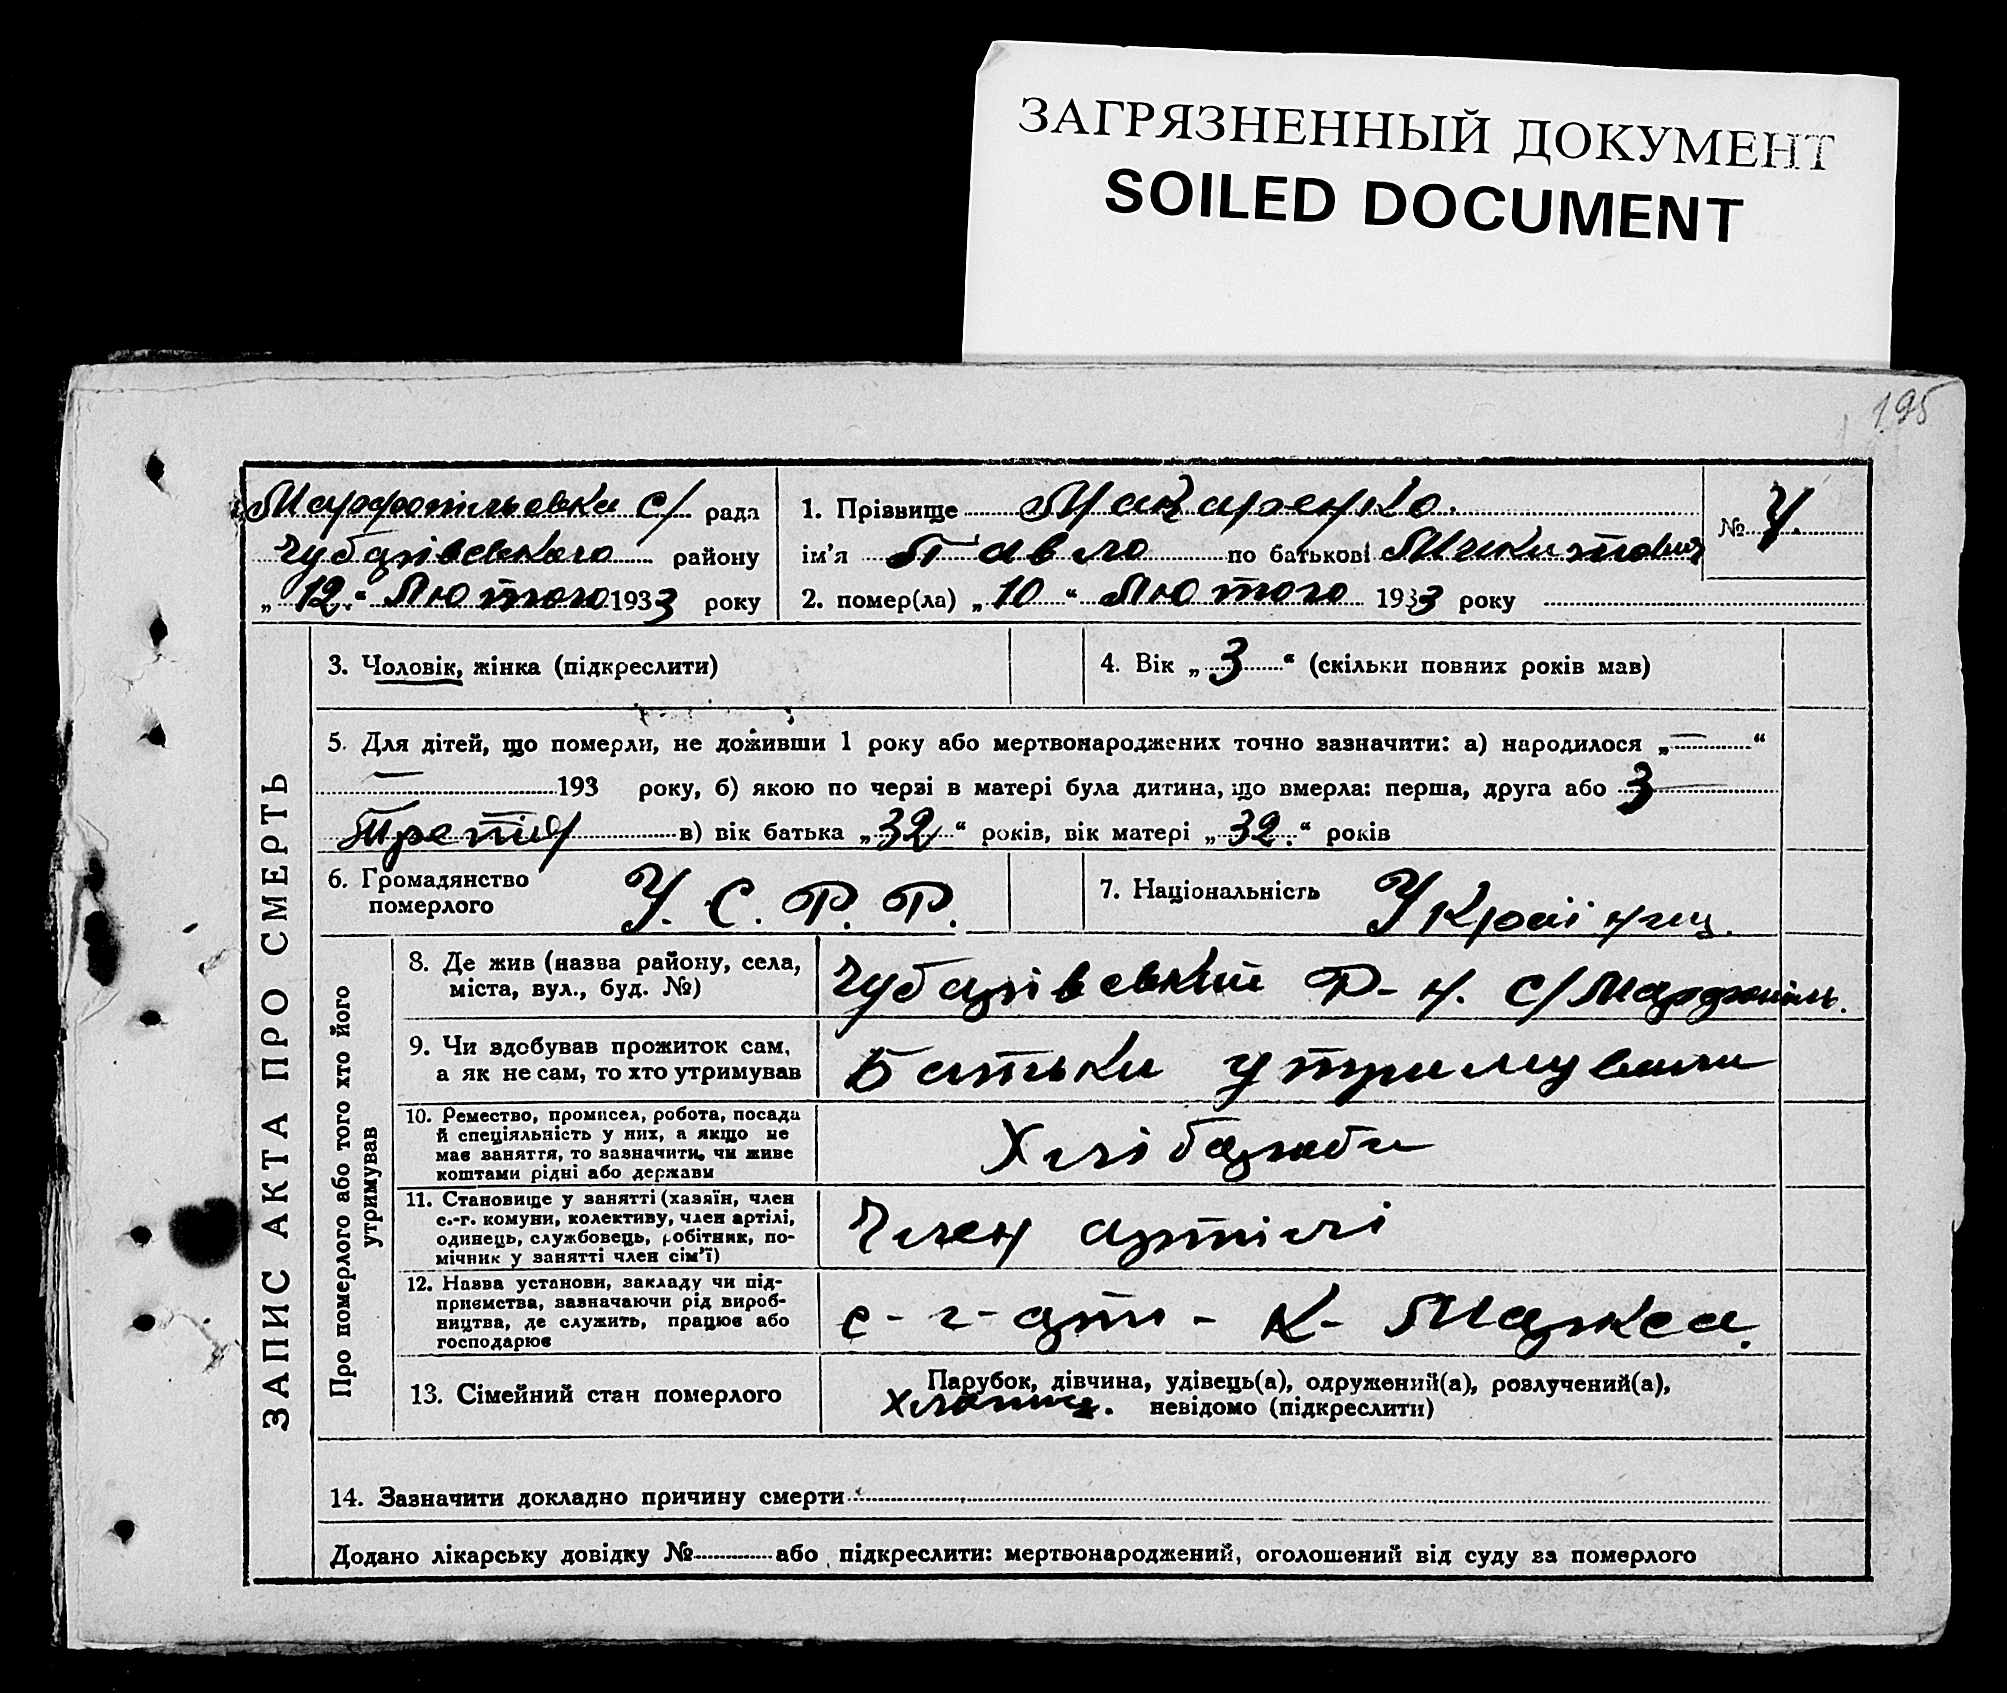 ЗАГРЯЗНЕННЫЙ ДОКУМЕНТ
SOILED DOCUMENT
195
Марфопільська с/ рада
Чубарівського району
„12“ Лютого 1933 року
1. Прізвище Макаренко.
ім’я Павло по батькові Микитович
2. помер(ла) „10“ Лютого 1933 року
№ 7.
ЗАПИС АКТА ПРО СМЕРТЬ
3. Чоловік, жінка (підкреслити)
4. Вік „3“ (скільки повних років мав)
5. Для дітей, що померли, не доживши 1 року або мертвонароджених точно зазначити: а) народилося „—“
— 193 року, б) якою по черзі в матері була дитина, що вмерла: перша, друга або 3
в) вік батька „32“ років, вік матері „32.“ років
6. Громадянство
померлого
У. С. Р. Р.
7. Національність
Українец.
Про померлого або того хто його
утримував
8. Де жив (назва району, села,
міста, вул., буд. №)
Чубарівський Р-н. С/Марфопіль.
9. Чи здобував прожиток сам,
а як не сам, то хто утримував
Батьки утримували
10. Ремество, промисел, робота, посада
й спеціяльність у них, а якщо не
має заняття, то зазначити, чи живе
коштами рідні або держави
Хлібороби
11. Становище у занятті (хазяїн, член
с.-г. комуни, колективу, член артілі,
одинець, службовець, робітник, по-
мічник у занятті член сім’ї)
Член артілі
12. Назва установи, закладу чи під-
приємства, зазначаючи рід вироб-
ництва, де служить, працює або
господарює
с-г-арт- К- Маркса.
13. Сімейний стан померлого
Парубок, дівчина, удівець(а), одружений(а), розлучений(а),
Хлопець. невідомо (підкреслити)
14. Зазначити докладно причину смерти
Додано лікарську довідку № або підкреслити: мертвонароджений, оголошений від суду за померлого